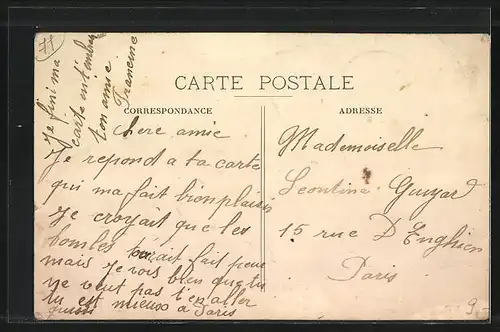 77
CARTE POSTALE
CORRESPONDANCE
ADRESSE
chere amie
Je repond a ta carte
qui ma fait bien plaisir
Je croyait que les
bombes fait peur
mais Je vois bien que tu
ne veut pas t'en aller
tu est mieux a Paris
Je fini ma
carte en
ton amie
Francine
Mademoiselle
Leontine Guyard
15 rue D'Enghien
Paris
9